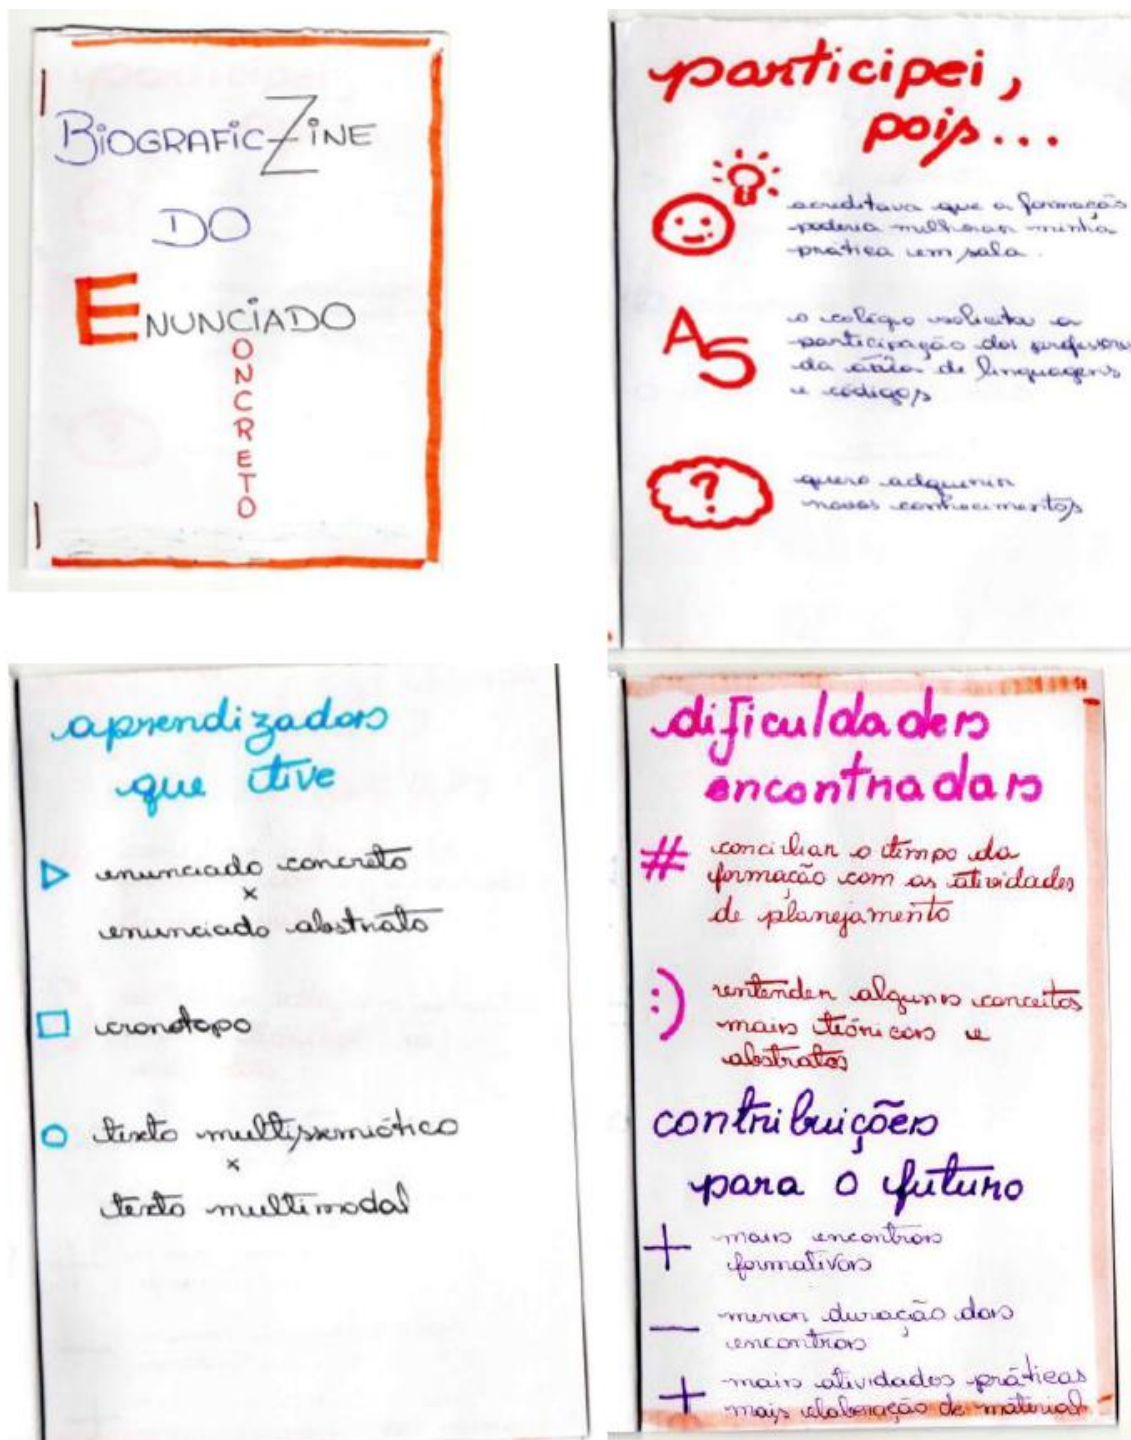 BiOGRAFiCZiNE
DO
ENUNCiADO
CONCRETO
participei,
pois...
acreditava que a formação
poderia melhorar minha
prática em sala.
A5
o colégio solicita a
participação dos professores
da área de linguagens
e códigos
?
quero adquirir
novos conhecimentos
aprendizados
que tive
enunciado concreto
x
enunciado abstrato
cronotopo
texto multissemiótico
x
texto multimodal
dificuldades
encontradas
# conciliar o tempo da
formação com as atividades
de planejamento
:) entender alguns conceitos
mais teóricos e
abstratos
contribuições
para o futuro
+ mais encontros
formativos
— menor duração dos
encontros
+ mais atividades práticas
mais elaboração de material